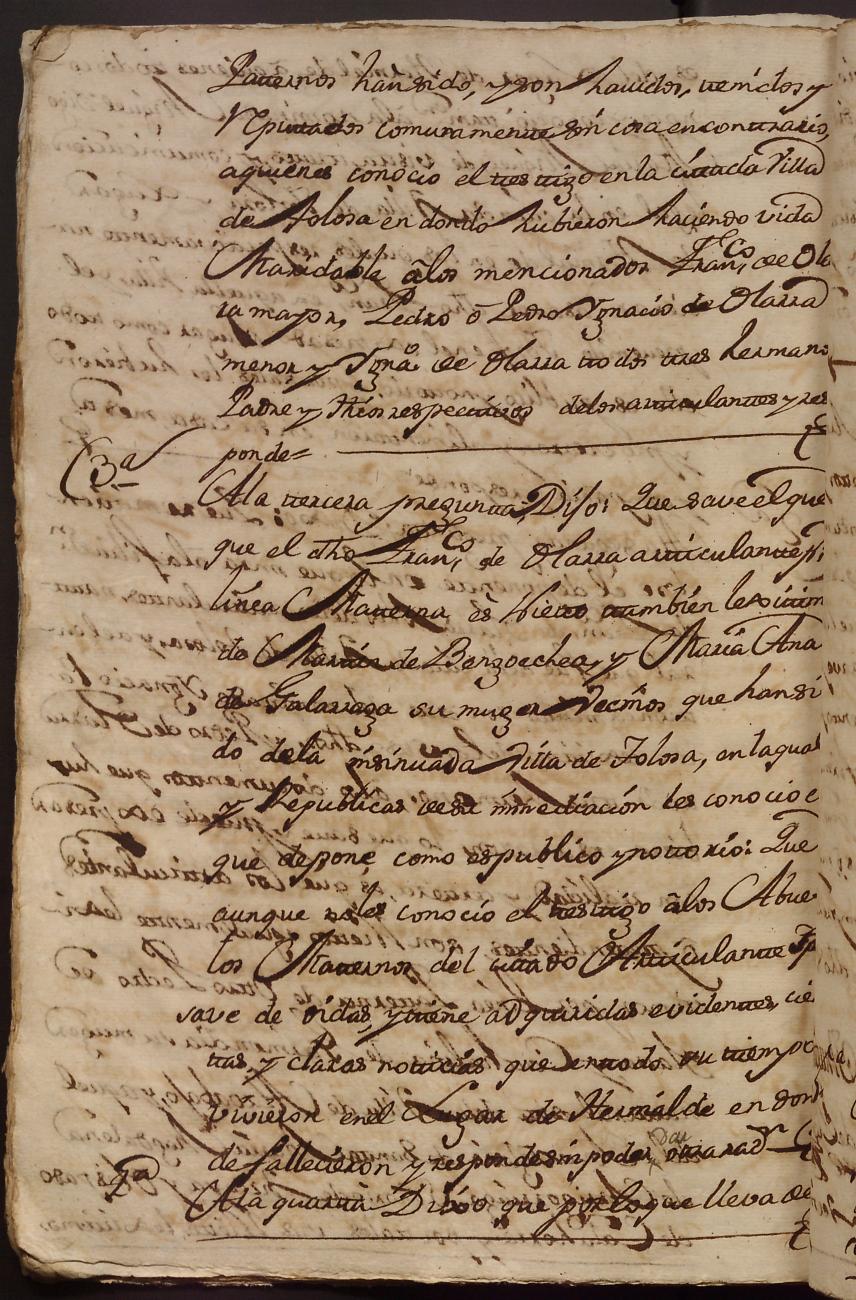 Paternos han sido, y son havidos, tenidos y
Reputados comunamente sin cosa en contrario,
a quienes conocio el testigo en la citada Villa
de Tolosa en donde hubieron haciendo vida
Maridable âlos mencionados Franco de Ola
ra mayor, Pedro ô Pedro Ygnacio de Olarra
menor y Ygno de Olarra todos tres hermano
Padre y thios respectivos delos articulantes y res
ponde=
(3.a
A la tercera pregunta, Dijo: Que save el que
que el dho Franco de Olarra articulante p.r
linea Materna es Nieto tambien lexitim
de Martin de Bengoechea, y Maria Ana
de Galarraga su muger Vecinos que han si
do dela insinuada Villa de Tolosa, en la qual
y Republicas de su inmediacion les conocio e
que depone como es publico y notorio: Que
aunque no les conocio el testigo âlos Abue
los Maternos del citado Articulante
save de oidas, y tiene adquiridas evidentes, cie
tas, y claras noticias que en todo su tiempo
vivieron en el Lugar de Hernialde en don
de fallecieron y responde sin poder dar otra raon
4a
A la quarta Dixo que por lo que lleva de